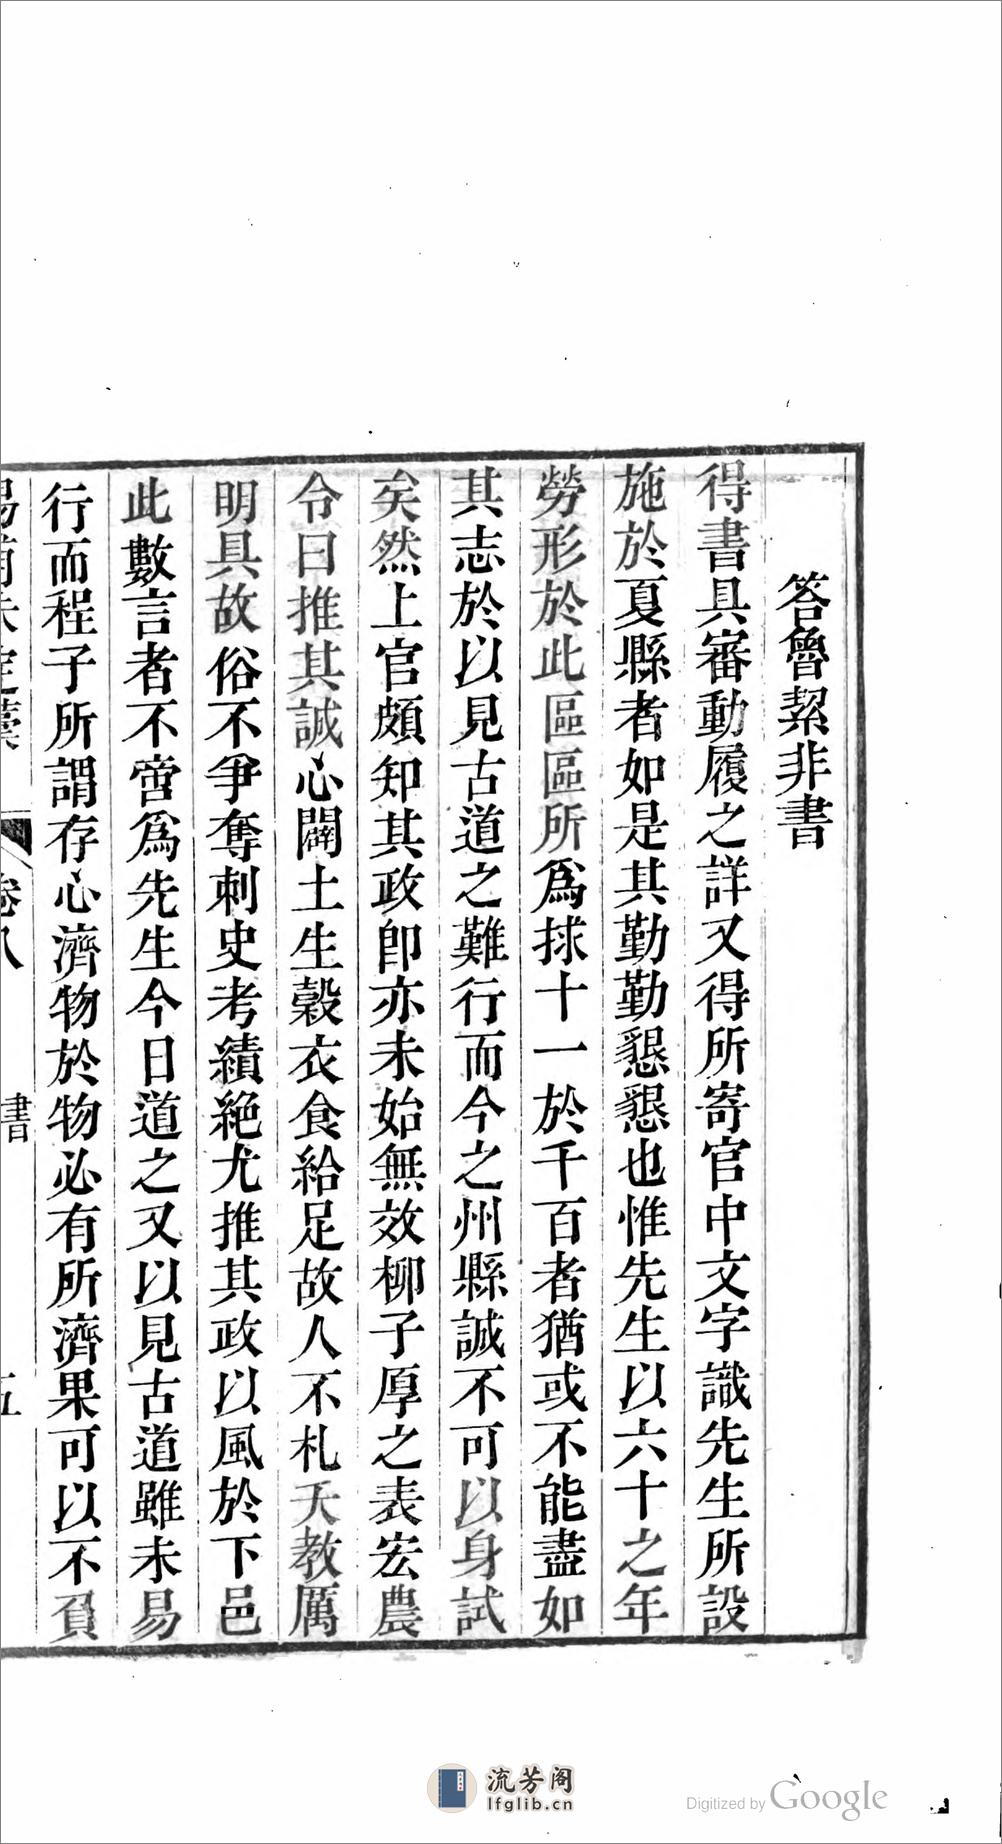 答魯絜非書
得書具審動履之詳又得所寄官中文字識先生所設
施於夏縣者如是其勤勤懇懇也惟先生以六十之年
勞形於此區區所爲捄十一於千百者猶或不能盡如
其志於以見古道之難行而今之州縣誠不可以身試
矣然上官頗知其政卽亦未始無效柳子厚之表宏農
令曰推其誠心闢土生穀衣食給足故人不札夭教厲
明具故俗不爭奪刺史考績絕尤推其政以風於下邑
此數言者不啻爲先生今日道之又以見古道雖未易
行而程子所謂存心濟物於物必有所濟果可以不負
卷八
書
五
流芳阁
lfglib.cn
Digitized by Google